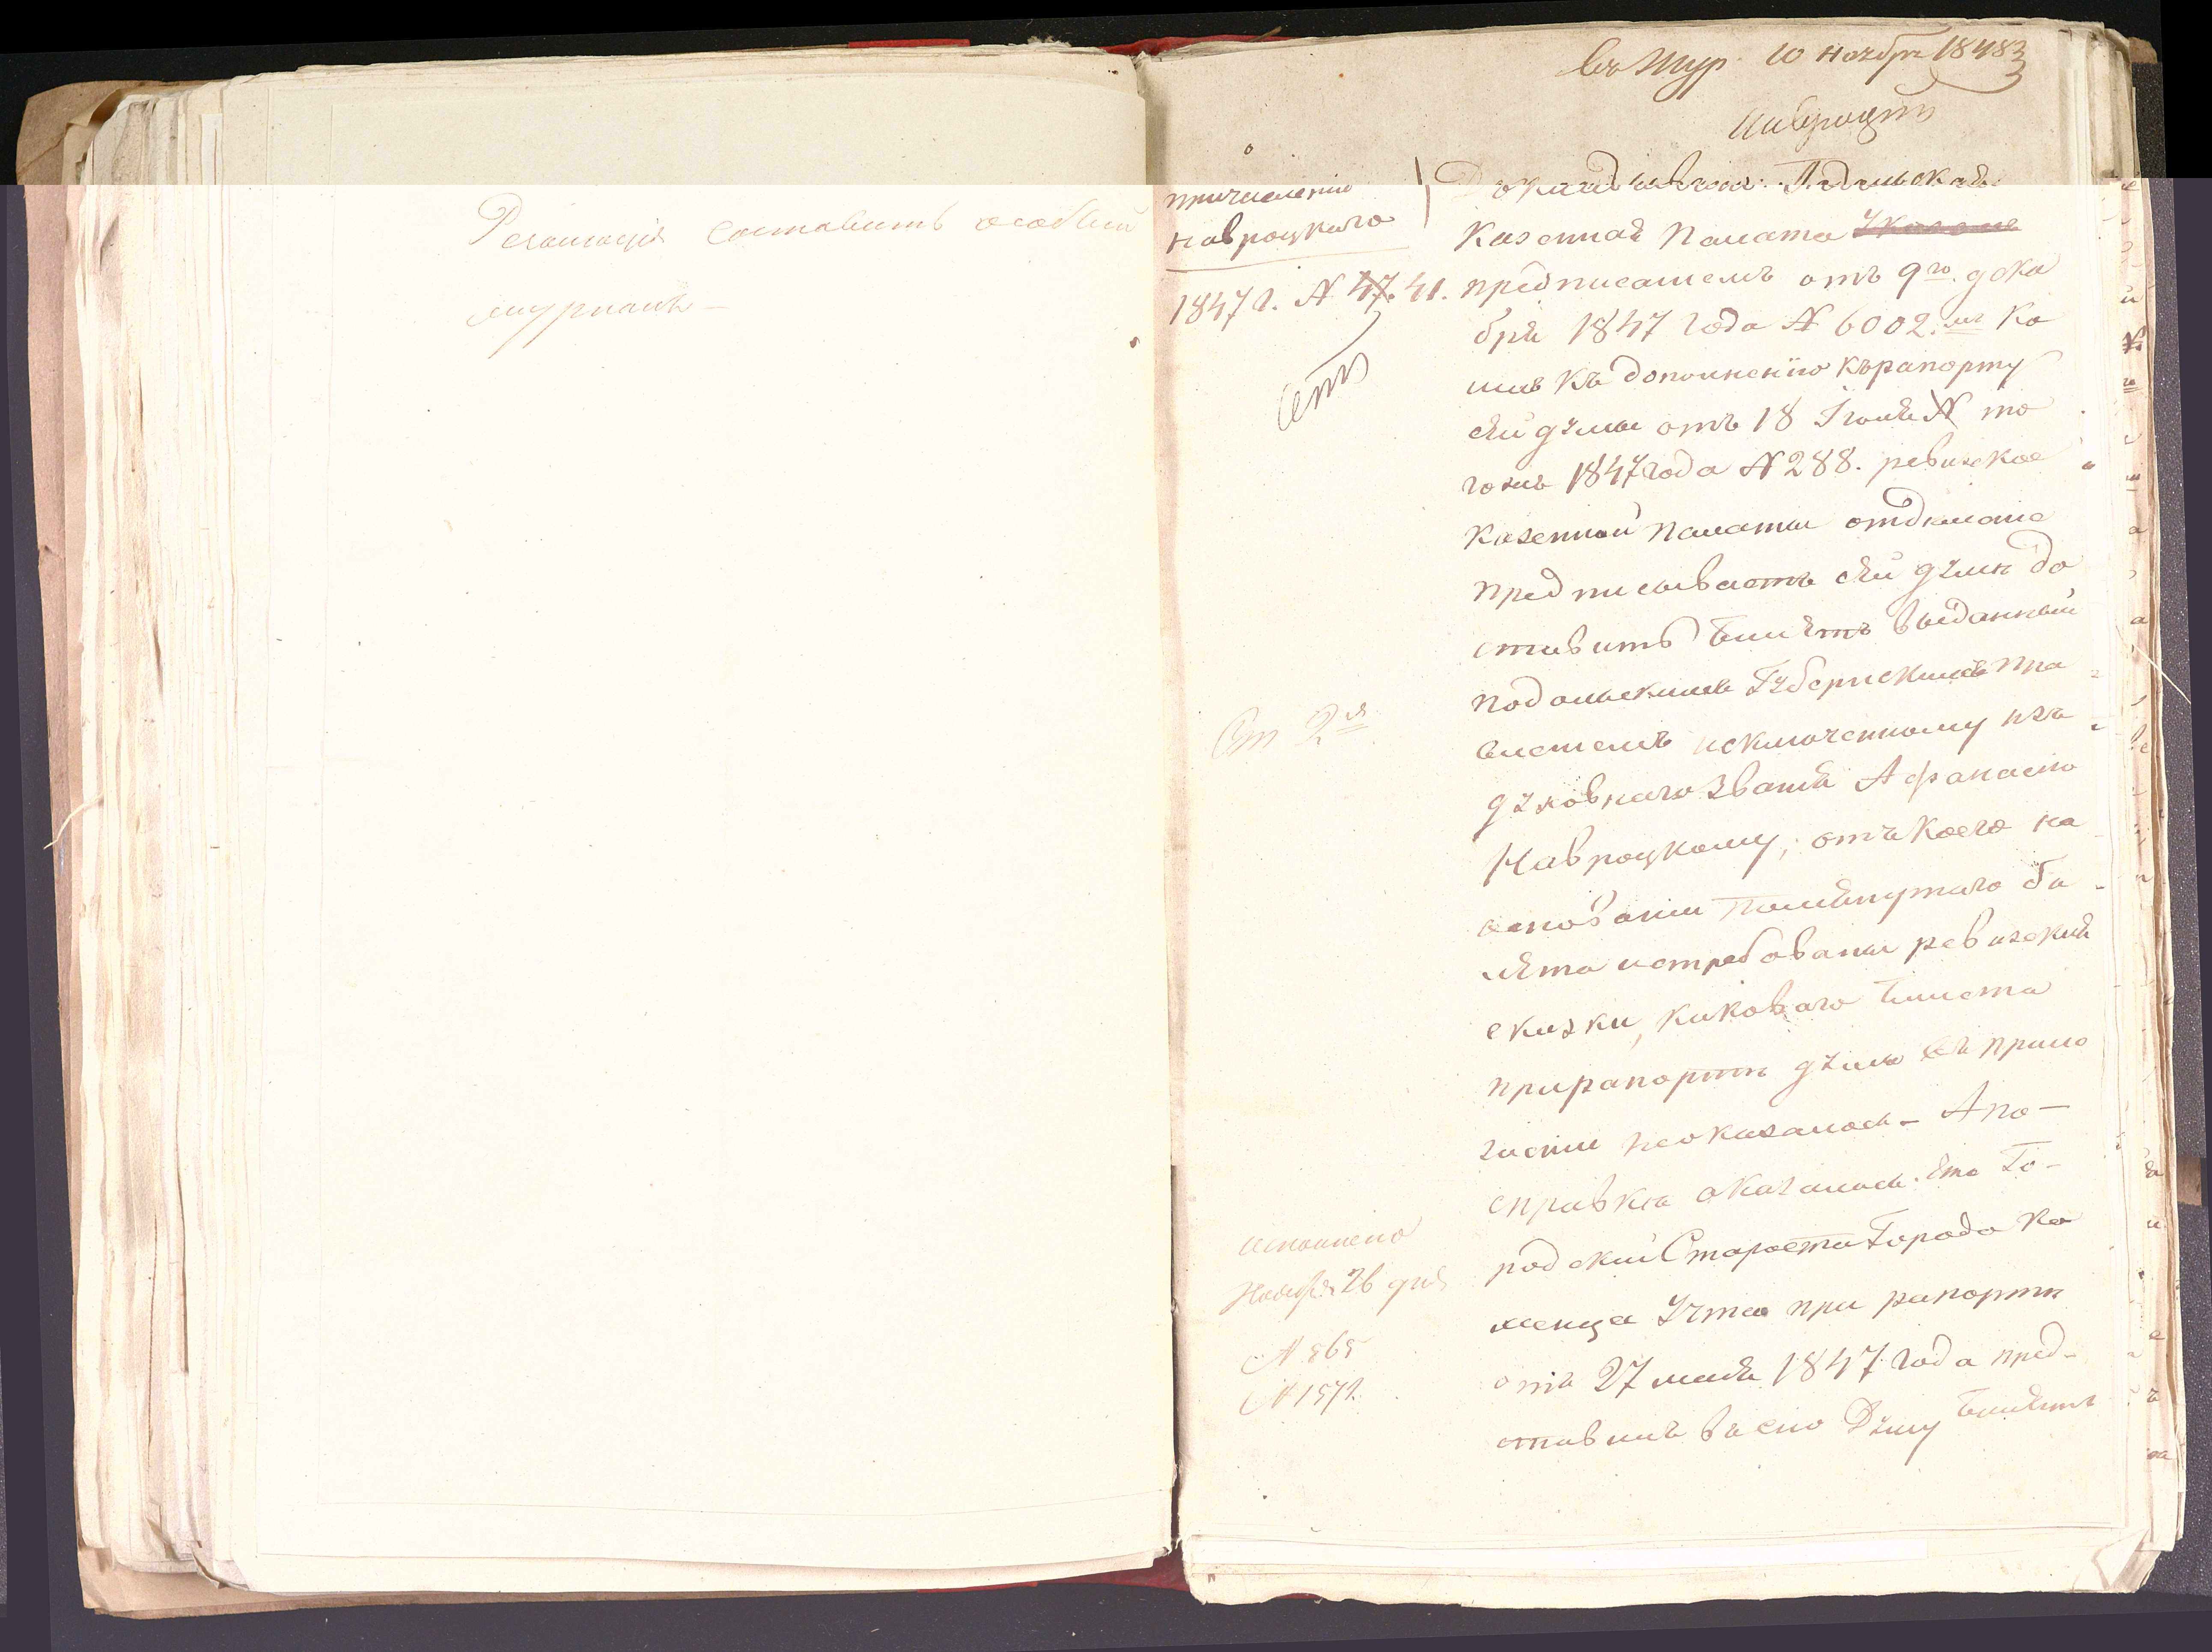 Резолюція составить особый
журналъ –
въ Жур. 10 ноября 1848
причисленію
Навроцкого
1847 г. N 47. 41.
Ст 2я
исполнено
Ноября 26 дня
N 565
N 1571.
Докладывана: Подольская
Казенная Палата Указомъ
предписаніемъ отъ 9го дека
бря 1847 года N 6002.мъ ко
имъ къ дополненію къ рапорту
сей думы отъ 18 Іюня N то
гожъ 1847 года N 288. ревизское
Казенной Палаты отдѣленіе
предписываетъ сей думѣ до
ставить билетъ выданный
подольскимъ Губернскимъ пра
вленіемъ исключенному изъ
духовнаго званія Афанасію
Навроцкому, отъ коего на
основаніи помянутаго би
лѣта истребованы ревизскія
сказки, каковаго билета
при рапортѣ думы въ прило
женіи неоказалось – А по –
справкѣ оказалось: что Го –
родскій Староста Города Ка
менца Утта при рапортѣ
отъ 27 мая 1847 года пред –
ставилъ въ сію Думу билѣтъ